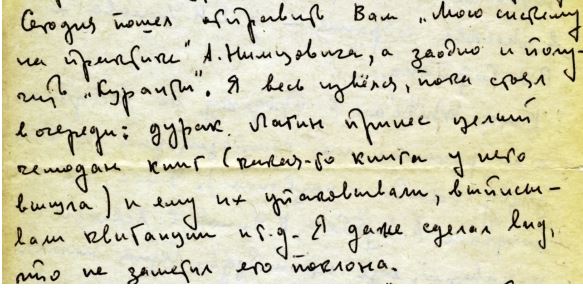 Сегодня пошел отправить Вам „Мою систему
на практике" А. Нимцовича, а заодно и полу-
чить „Куранты". Я весь извёлся, пока стоял
в очереди: дурак Латин принес целый
чемодан книг (какая-то книга у него
вышла) и ему их упаковывали, выписы-
вали квитанции и т.д. Я даже сделал вид,
что не заметил его поклона.